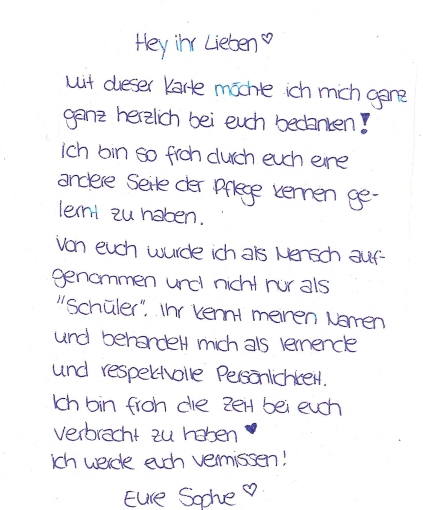 Hey ihr Lieben ♡
Mit dieser Karte möchte ich mich ganz
ganz herzlich bei euch bedanken!
Ich bin so froh durch euch eine
andere Seite der Pflege kennen ge-
lernt zu haben.
Von euch wurde ich als Mensch auf-
genommen und nicht nur als
"Schüler". Ihr kennt meinen Namen
und behandelt mich als lernende
und respektvolle Persönlichkeit.
Ich bin froh die Zeit bei euch
verbracht zu haben ♥
ich werde euch vermissen!
Eure Sophie ♡